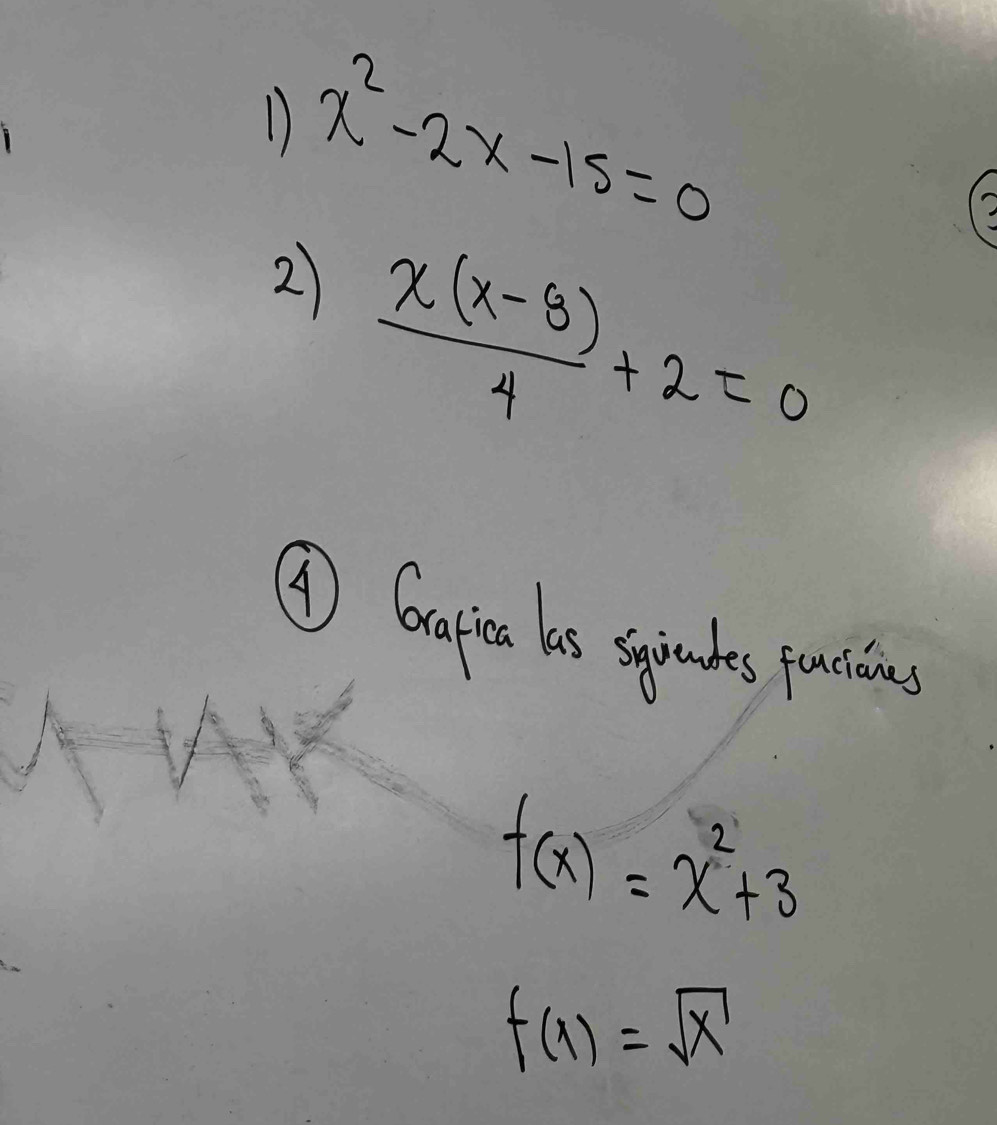 1) x² - 2x - 15 = 0
2) x(x - 8)/4 + 2 = 0
④ Grafica las siguientes funciónes
f(x) = x² + 3
f(x) = √x